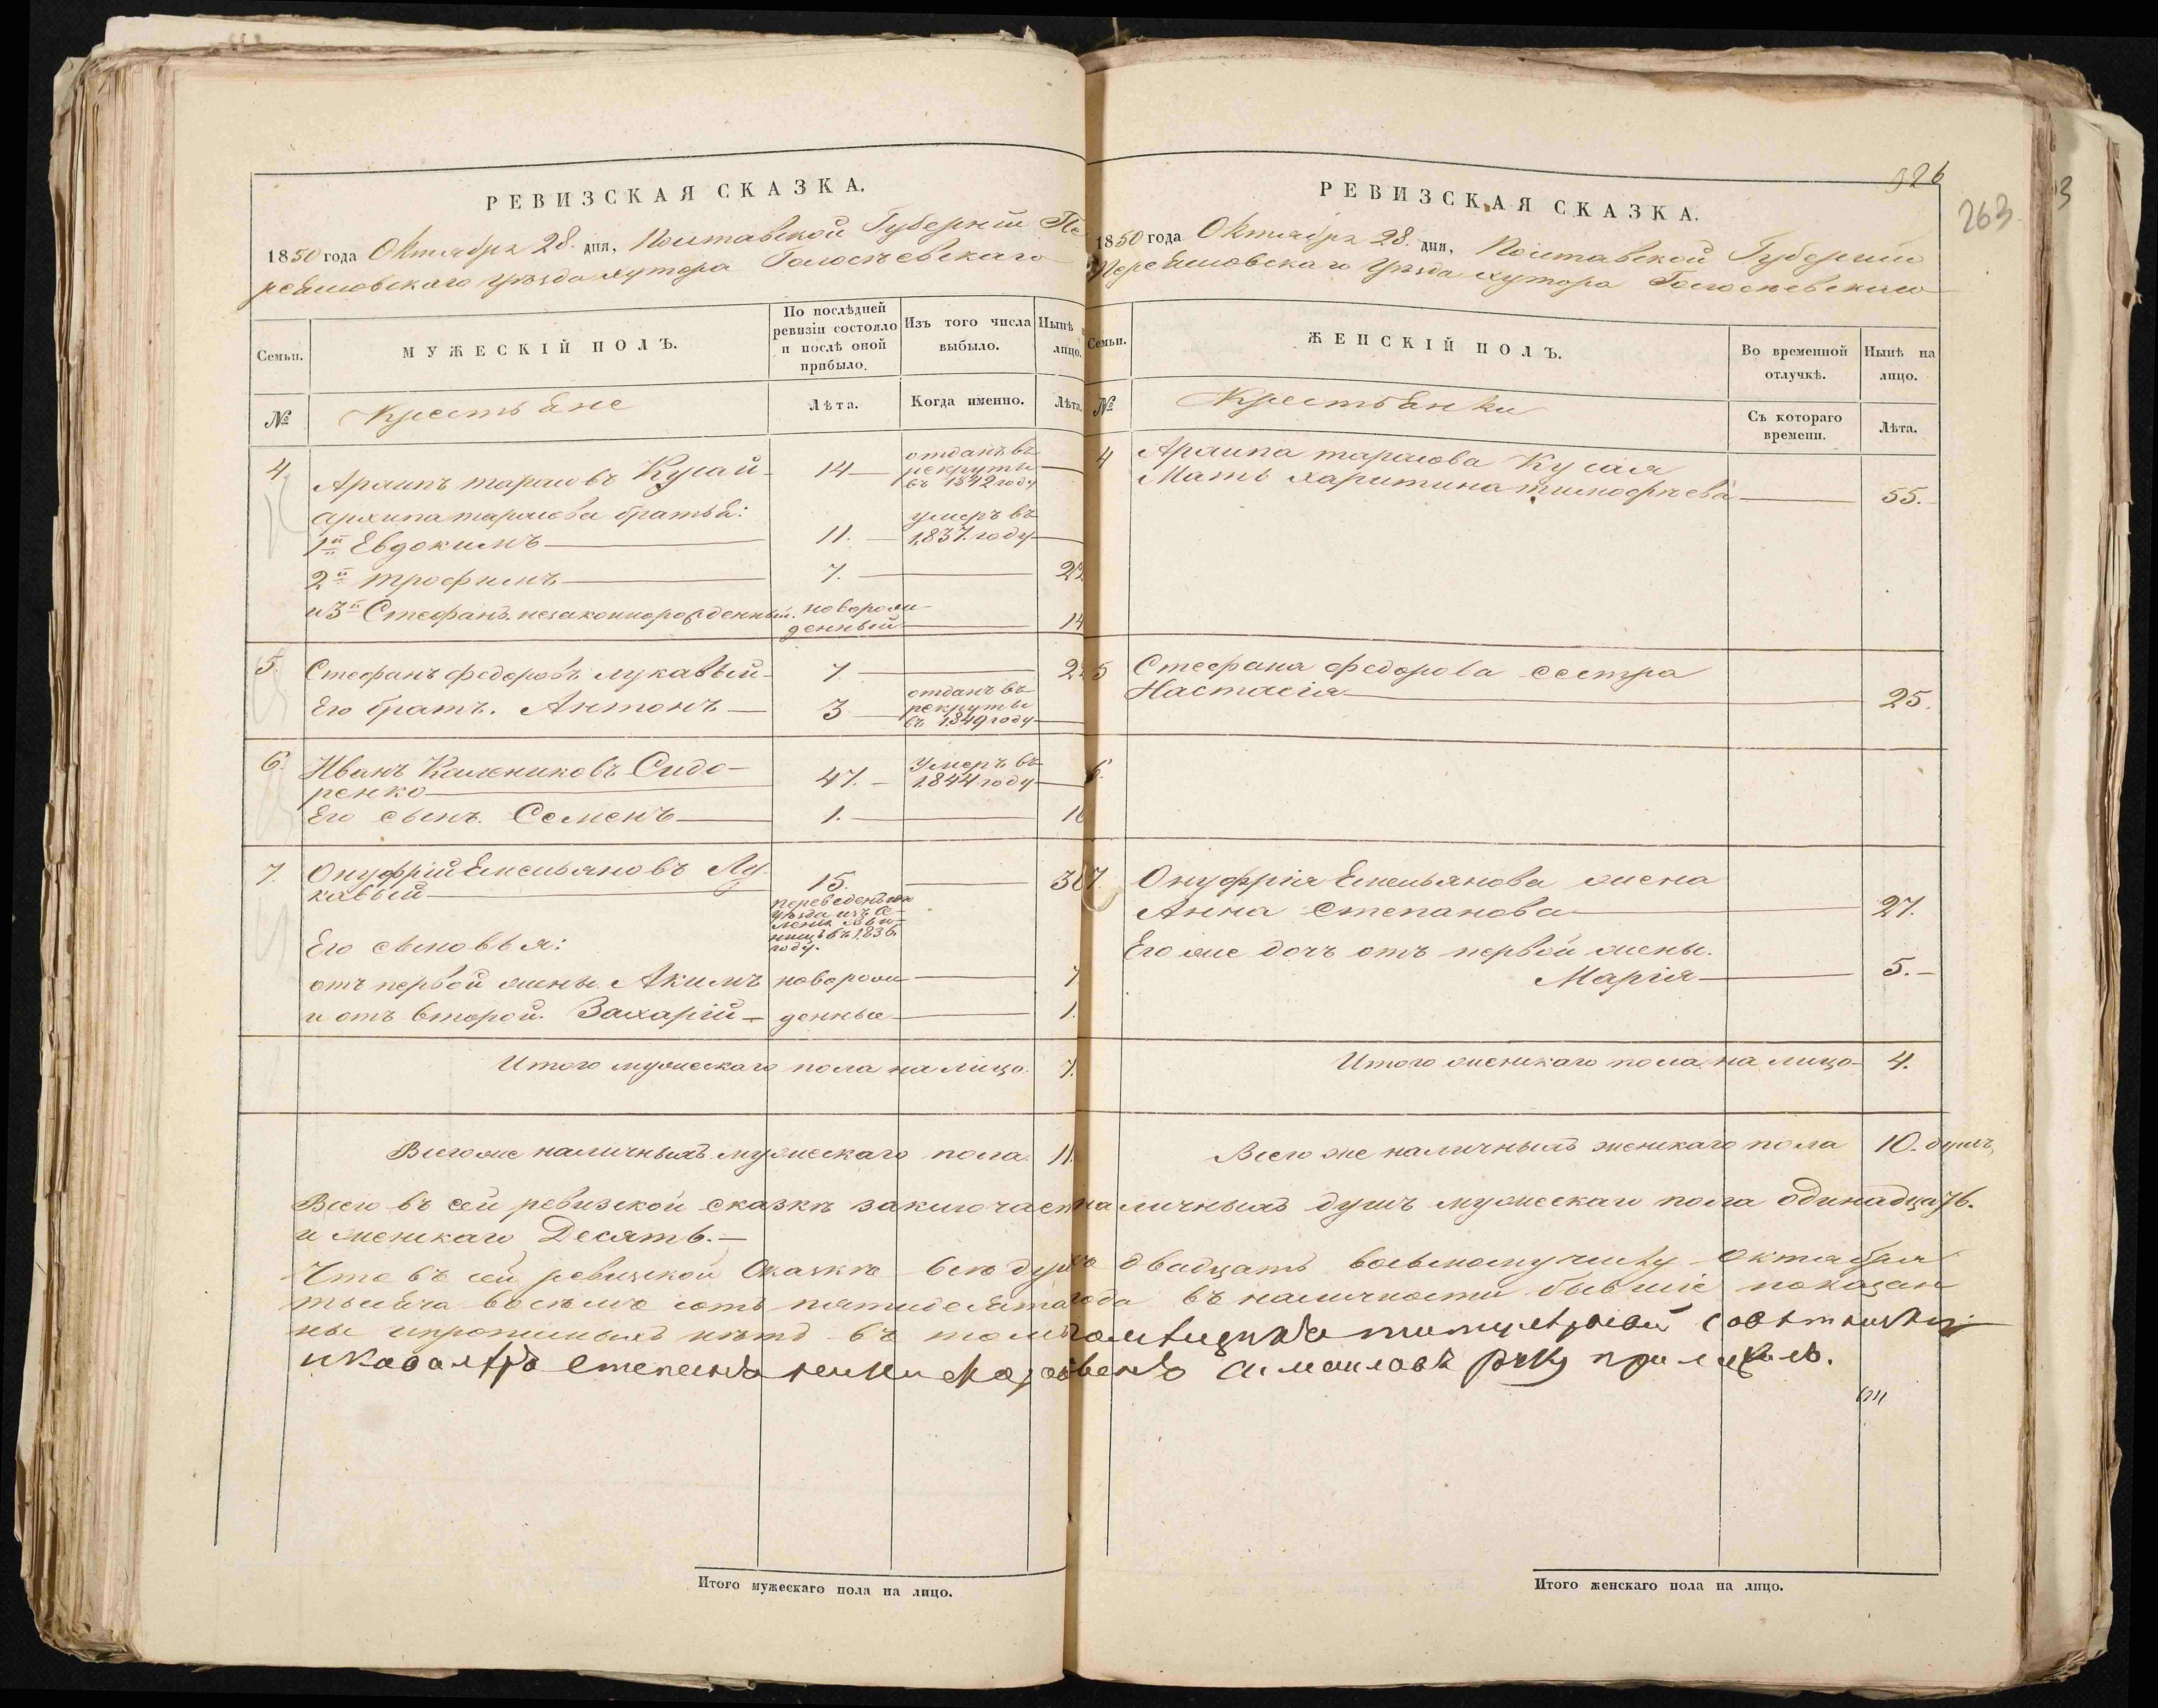 РЕВИЗСКАЯ СКАЗКА.
1850 года Октября 28. дня, Полтавской Губерніи Пе-
реяловскаго уѣзда хутора Голосѣевскаго
Семьи.
МУЖЕСКІЙ ПОЛЪ.
По послѣдней ревизіи состояло и послѣ оной прибыло.
Изъ того числа выбыло.
Нынѣ
лицо.
№
Крестьяне
Лѣта.
Когда именно.
Лѣта.
4. Архипъ Тарасовъ Кусай 14 отданъ въ рекруты въ 1842 году
Архипа Тарасова братья:
1й Евдокимъ 11. умеръ въ 1837. году
2й Трофимъ 7.
и 3й Стефанъ незаконнорожденный. новорож-
денный 14
5. Стефанъ Федоровъ Лукавый 7.
Его братъ. Антонъ 3 отданъ въ рекруты въ 1849 году
6. Иванъ Калениковъ Сидо-
ренко 47. умеръ въ 1844 году
Его сынъ. Семенъ 1.
7. Онуфрій Емельяновъ Лу-
кавый 15.
переведенъ
уѣзда изъ се-
въ 1836
году.
Его сыновья:
отъ первой жены Акимъ новорож- 7
и отъ второй. Захарій денные 1.
Итого мужескаго пола на лицо. 7.
Всего же наличныхъ мужескаго пола. 11.
РЕВИЗСКАЯ СКАЗКА.
326
263
1850 года Октября 28. дня, Полтавской Губерніи
уѣзда хутора Голосѣевскаго
Семьи.
ЖЕНСКІЙ ПОЛЪ.
Во временной отлучкѣ.
Нынѣ на лицо.
№
Крестьянки
Съ котораго времени.
Лѣта.
4 Архипа Тарасова Кусая
Мать Харитина Тимофѣева 55.
5 Стефана Федорова сестра
Настасія 25.
6.
7. Онуфрія Емельянова жена
Анна Степанова 27.
Его же дочь отъ первой жены.
Марія 5.
Итого женскаго пола на лицо 4.
Всего же наличныхъ женскаго пола 10. душъ,
Всего въ сей ревизской сказкѣ заключается наличныхъ душъ мужескаго пола одинадцать.
и женскаго Десять.
Что въ сей ревизской Сказкѣ всѣ души двадцать восьмому числу Октября
тысяча восемъ сотъ пятидесятаго года въ наличности бывшіе показан
ны и прописныхъ нѣтъ въ томъ помѣщикъ титулярный совѣтникъ
и кавалеръ Степанъ руку приложилъ.
Итого мужескаго пола на лицо.
Итого женскаго пола на лицо.